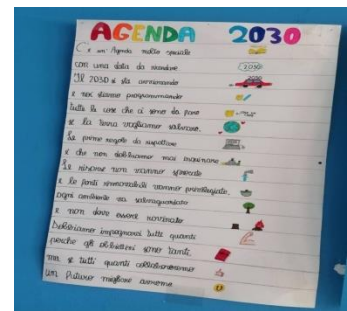 AGENDA 2030
C'è un'Agenda molto speciale
con una data da ricordare (2030)
Il 2030 si sta avvicinando
e noi stiamo programmando
tutte le cose che ci sono da fare
se la Terra vogliamo salvare.
La prima regola da rispettare
è che non dobbiamo mai inquinare
Le risorse non vanno sprecate
e le fonti rinnovabili vanno privilegiate,
ogni ambiente va salvaguardato
e non deve essere rovinato
Dobbiamo impegnarci tutti quanti
perché gli obbiettivi sono tanti.
ma se tutti quanti collaboreremo
un futuro migliore avremo